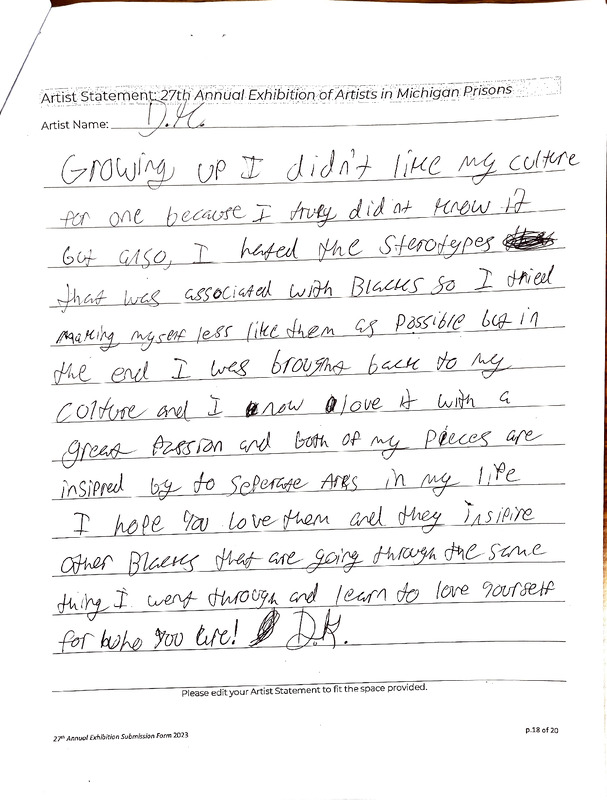 Artist Statement: 27th Annual Exhibition of Artists in Michigan Prisons
Artist Name: D.K.
Growing up I didn't like my culture
for one because I truly did nt know it
but also, I hated the sterotypes
that was associated with Blacks so I tried
making myself less like them as possible but in
the end I was brought back to my
colture and I now love it with a
great passion and both of my pieces are
insipred by to seperate Ares in my life
I hope you love them and they insipire
other Blacks that are going through the same
thing I went through and learn to love yourself
for who you are! D.K.
Please edit your Artist Statement to fit the space provided.
27th Annual Exhibition Submission Form 2023
p.18 of 20